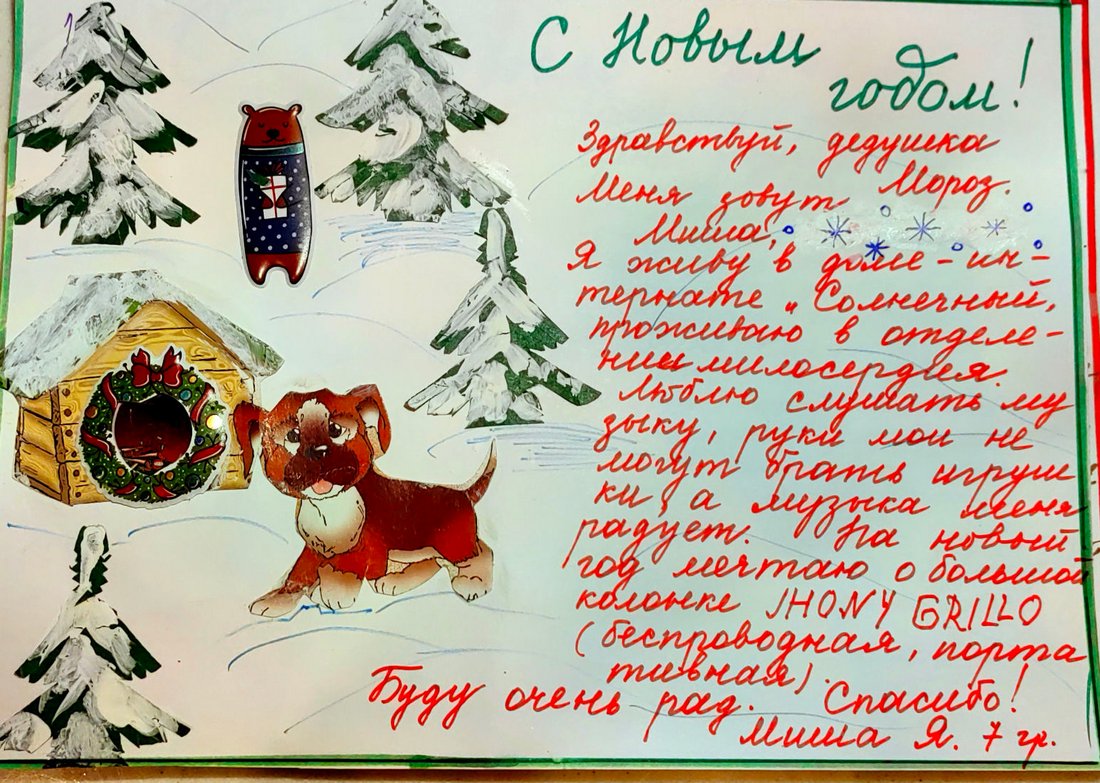 С Новым
годом!
Здравствуй, дедушка
Мороз.
Меня зовут
Миша,
Я живу в доме-ин-
тернате „Солнечный,
проживаю в отделе-
нии милосердия.
Люблю слушать му
зыку, руки мои не
могут брать игруш
ки, а музыка меня
радует. На новый
год мечтаю о большой
колонке JHONY GRILLO
(беспроводная, порта
тивная).
Буду очень рад. Спасибо!
Миша Я. 7 гр.